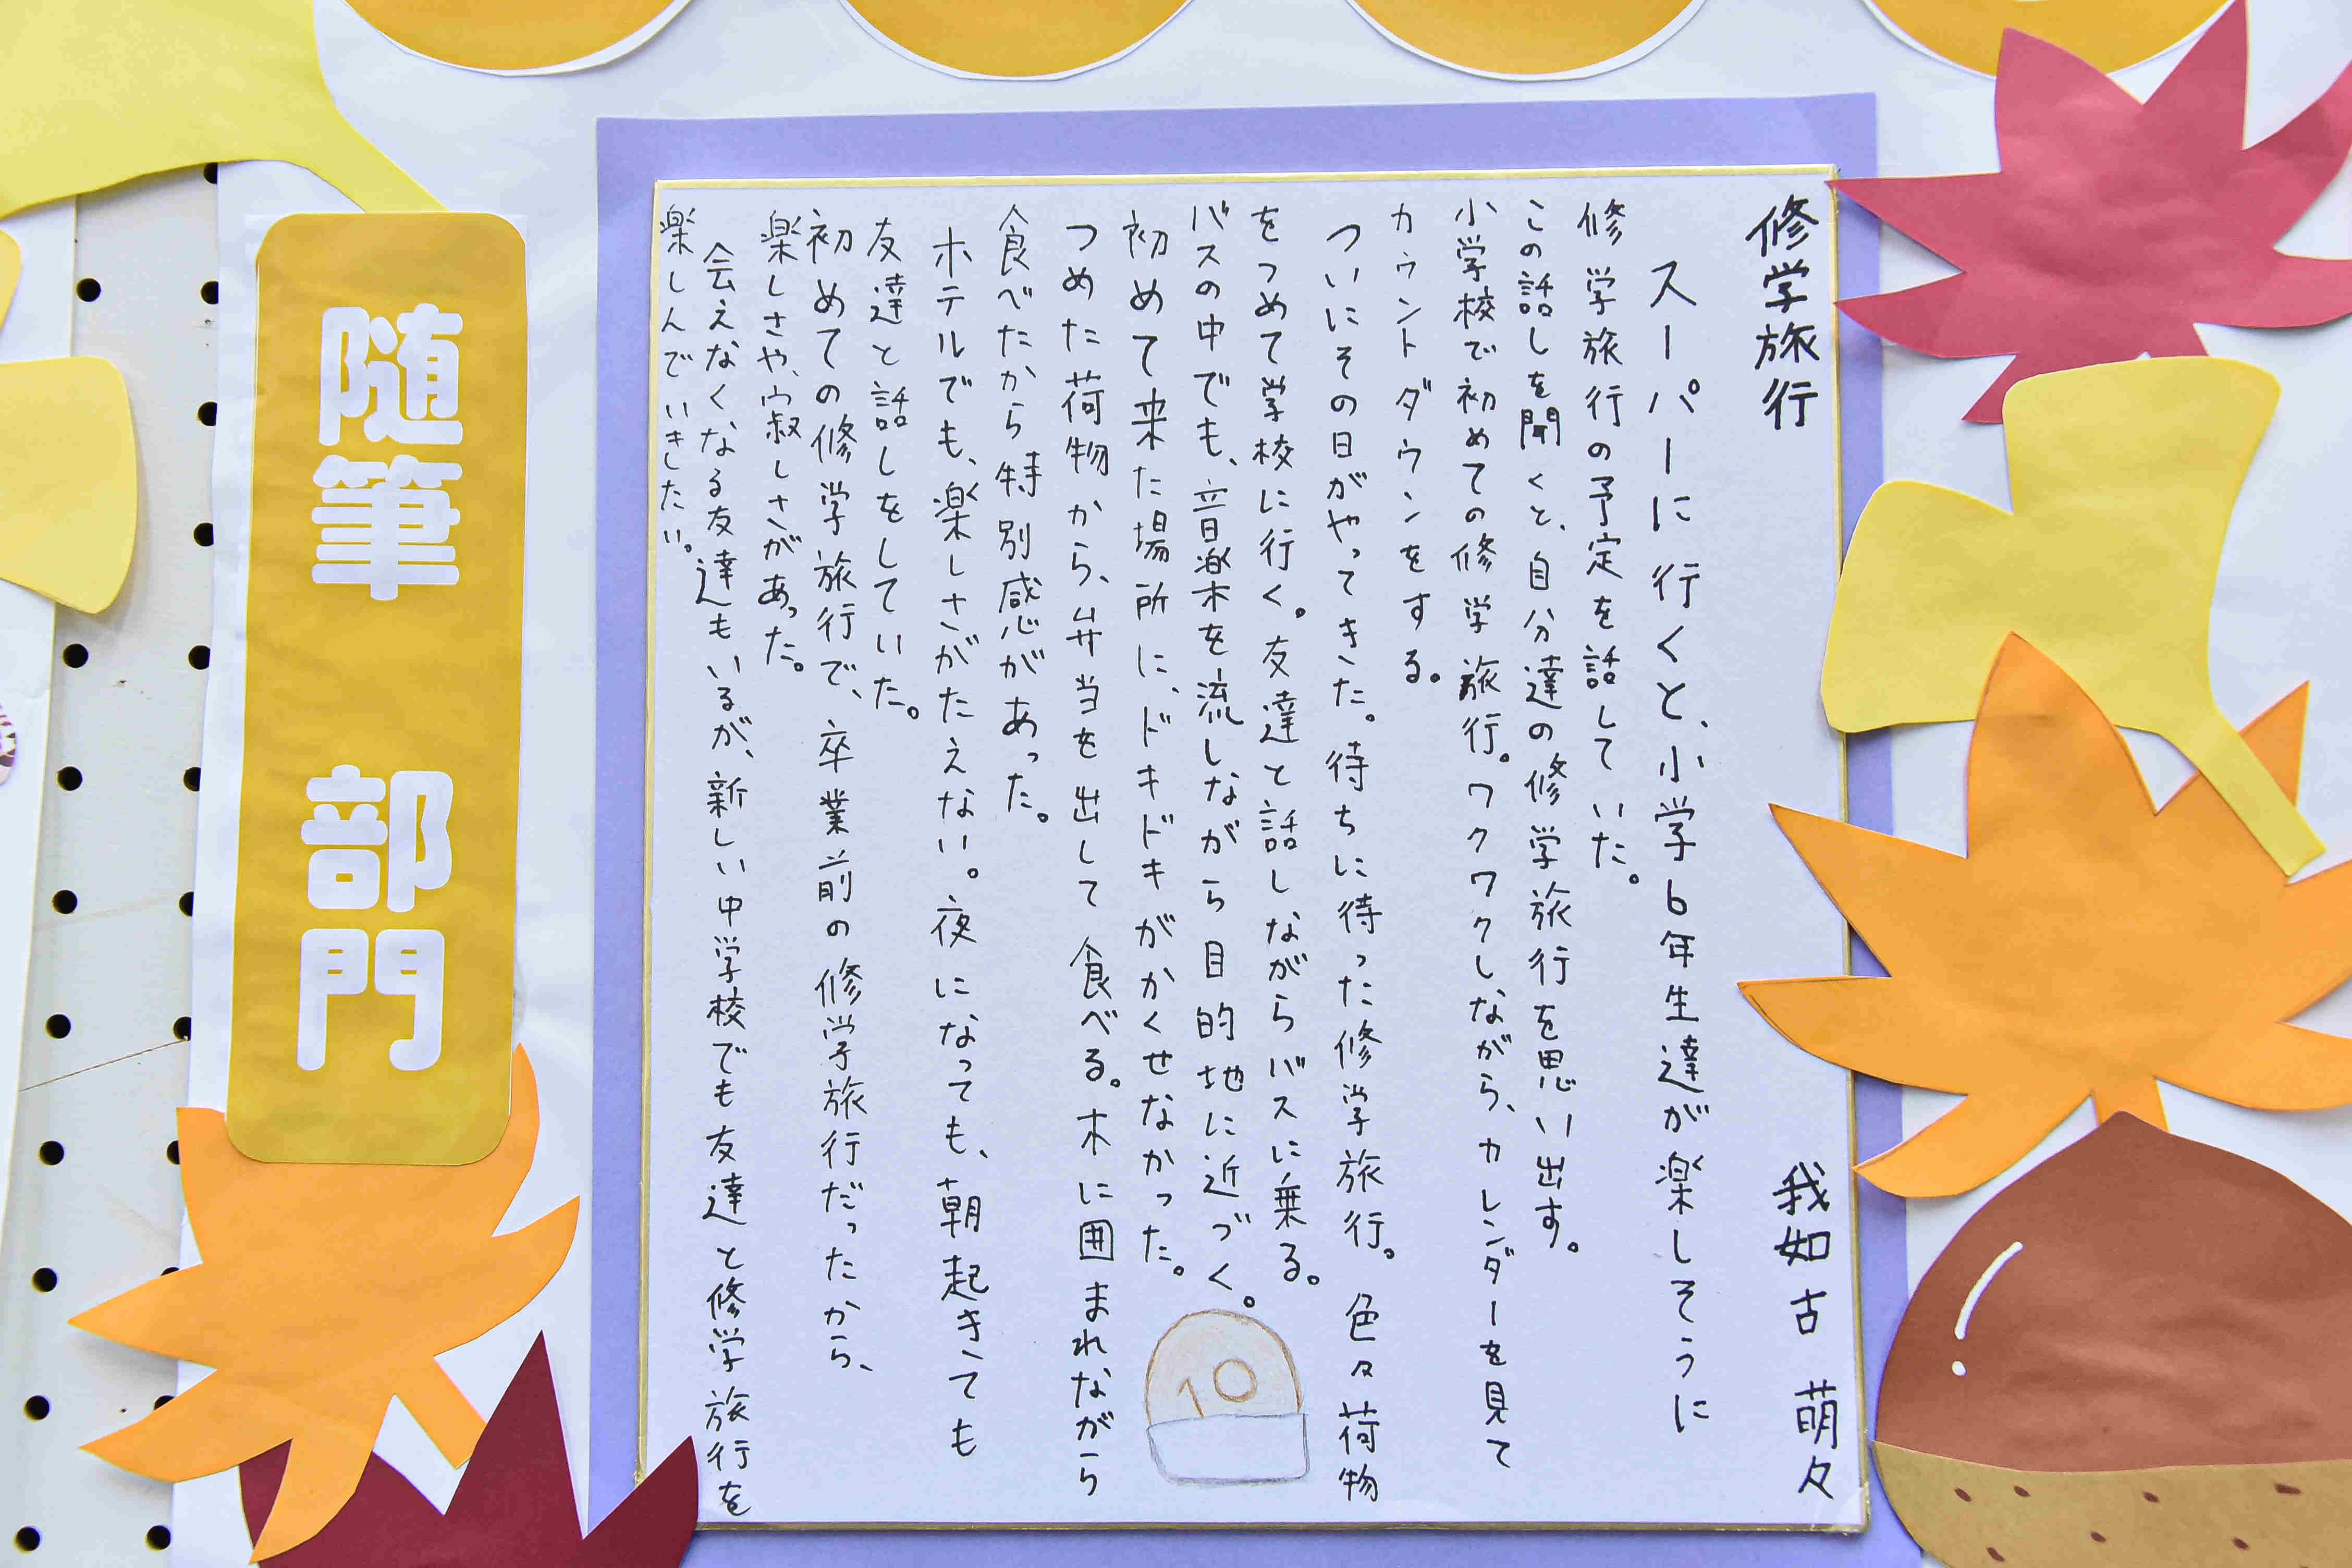 修学旅行
我如古 萌々
スーパーに行くと、小学6年生達が楽しそうに
修学旅行の予定を話していた。
この話しを聞くと、自分達の修学旅行を思い出す。
小学校で初めての修学旅行。ワクワクしながら、カレンダーを見て
カウントダウンをする。
ついにその日がやってきた。待ちに待った修学旅行。色々荷物
をつめて学校に行く。友達と話しながらバスに乗る。
バスの中でも、音楽を流しながら目的地に近づく。
初めて来た場所に、ドキドキがかくせなかった。
つめた荷物から、弁当を出して食べる。木に囲まれながら
食べたから特別感があった。
ホテルでも、楽しさがたえない。夜になっても、朝起きても
友達と話しをしていた。
初めての修学旅行で、卒業前の修学旅行だったから、
楽しさや、寂しさがあった。
会えなくなる友達もいるが、新しい中学校でも友達と修学旅行を
楽しんでいきたい。
10
随筆 部門